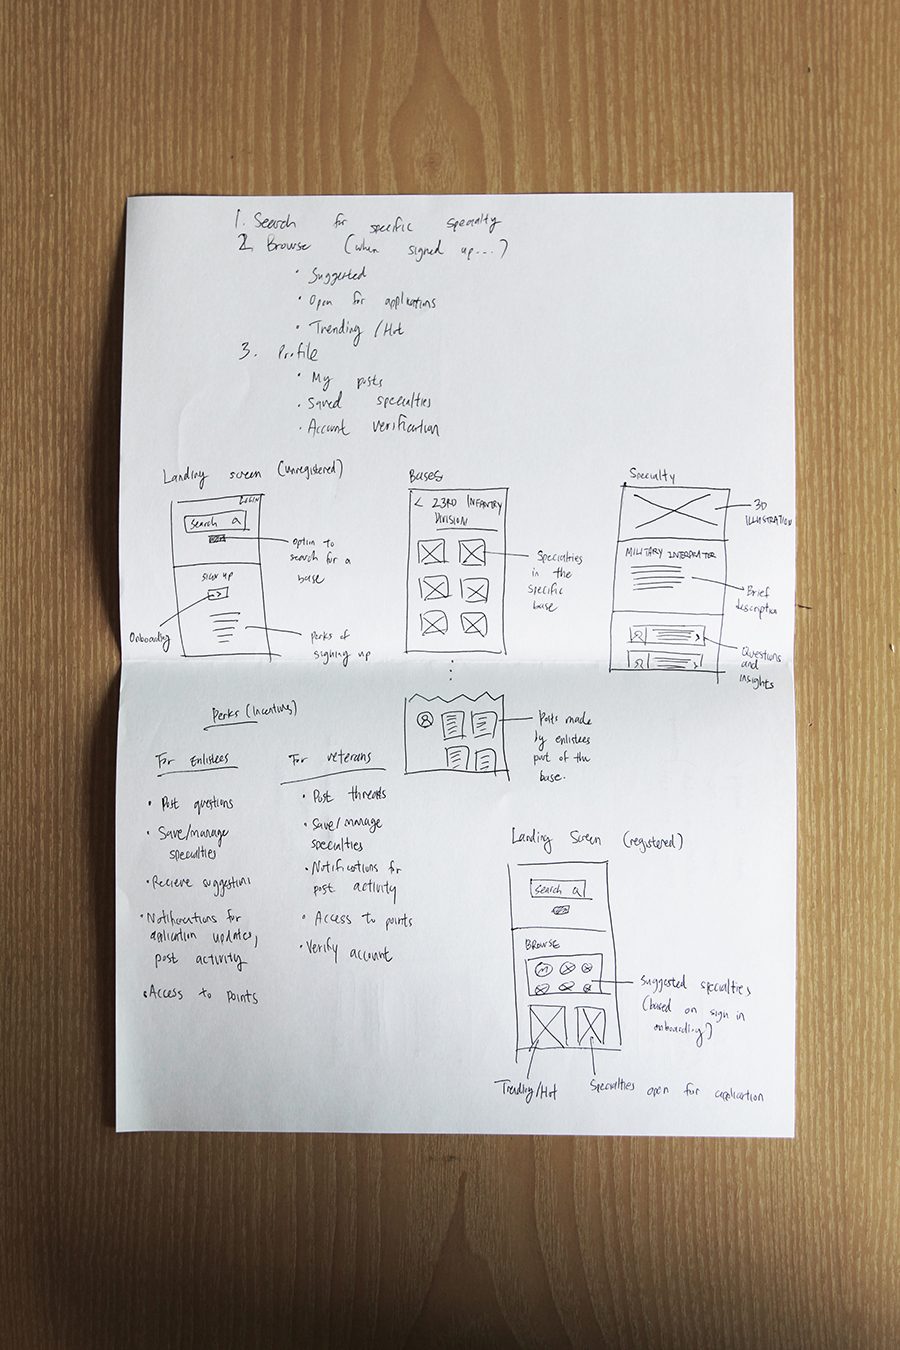 1. Search for specific specialty
2. Browse (when signed up...)
• Suggested
• Open for applications
• Trending / Hot
3. Profile
• My posts
• Saved specialties
• Account verification
Landing screen (unregistered)
LOGIN
Search
SIGN UP
Option to
search for a
base
Onboarding
Perks of
signing up
Bases
< 23RD INFANTRY
DIVISION
Specialties
in the
specific
base
Posts made
by enlistees
part of the
base.
Specialty
MILITARY INTERPRETER
3D
ILLUSTRATION
Brief
description
Questions
and
insights
Perks (Incentives)
For Enlistees
• Post questions
• Save/manage
specialties
• Recieve suggestions
• Notifications for
application updates,
post activity
• Access to points
For veterans
• Post threads
• Save/manage
specialties
• Notifications for
post activity
• Access to points
• Verify account
Landing Screen (registered)
Search
BROWSE
Suggested specialties
(based on sign in
onboarding)
Trending/Hot
Specialties open for application